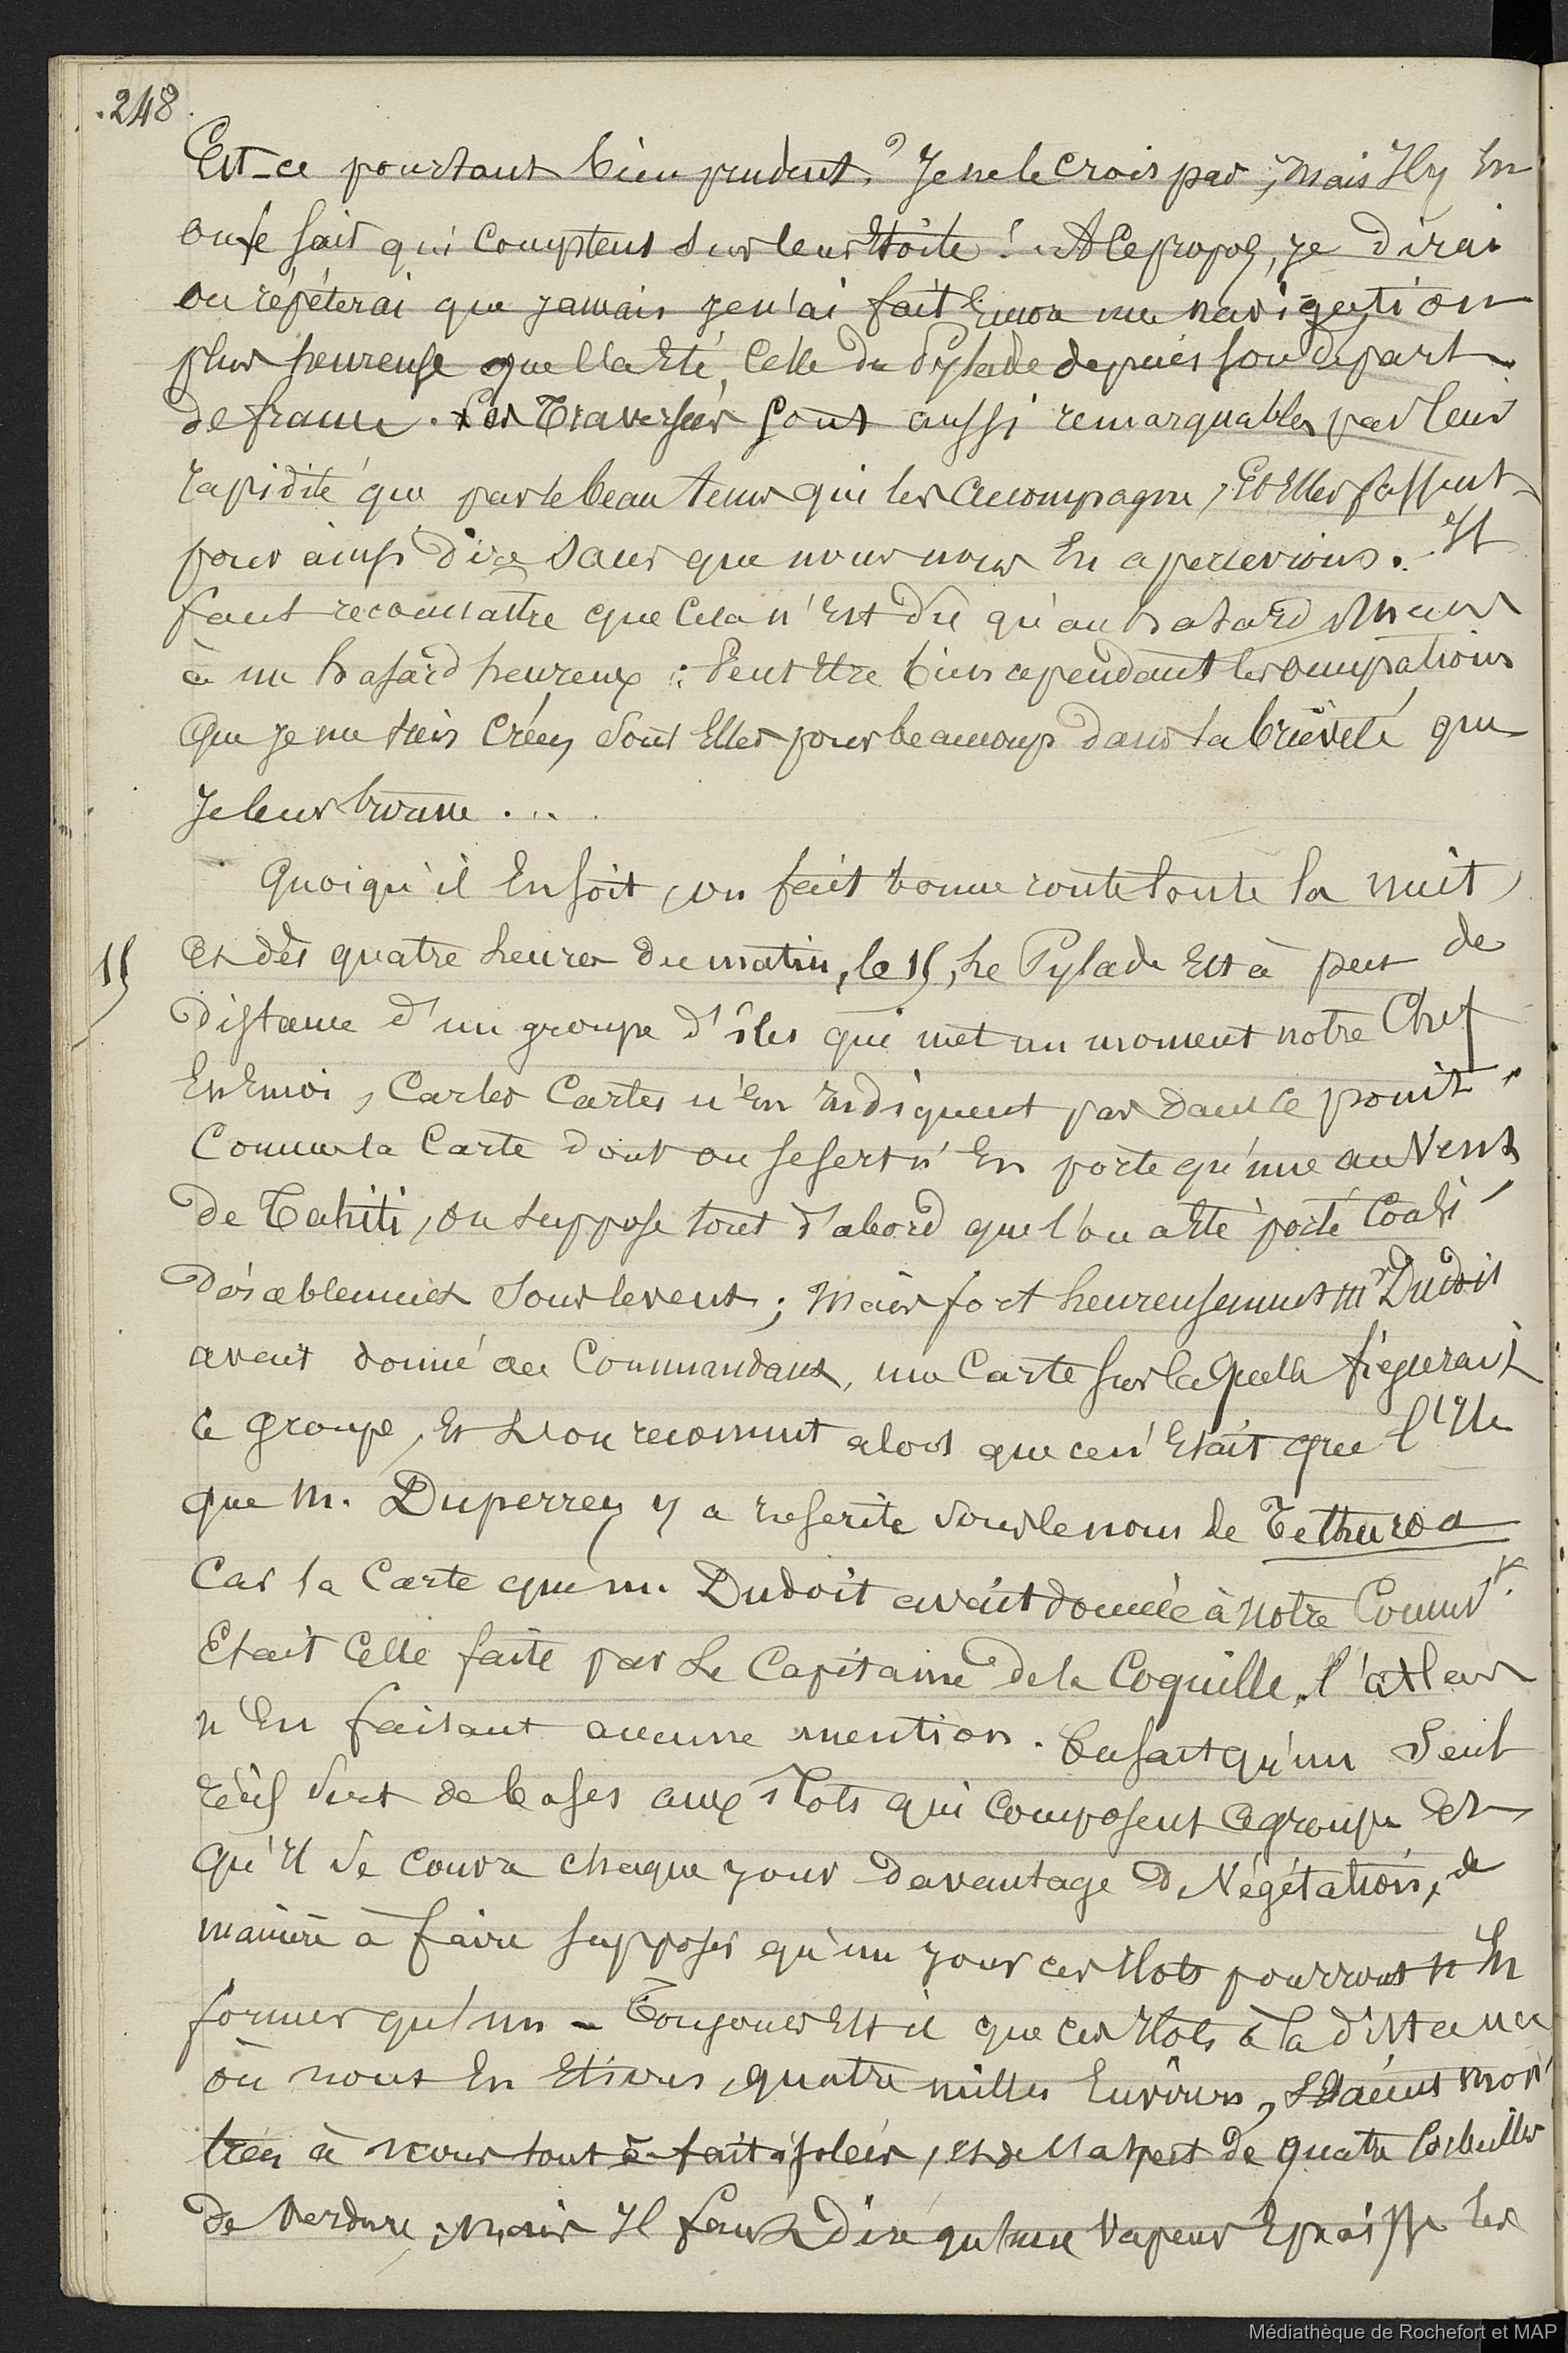 248
Est-ce pourtant bien prudent ? Je ne le crois pas, mais Il y en
on le sait qui comptent sur leur Etoile ! A ce propos, je dirai
ou répéterai que jamais je n'ai fait encore une navigation
plus heureuse que l'a été, celle du Pylade depuis son départ
de france. Les Traversées sont aussi remarquables par leur
rapidité que par le beau tems qui les accompagne, Et Elles passent
pour ainsi dire sans que nous nous En apercevions. Il
faut reconnaitre que Cela n'Est dû qu'au hasard, Mais
à un hasard heureux : Peut Etre bien cependant les occupations
que je me suis Créées, sont Elles pour beaucoup dans la briéveté que
je leur trouve ....
Quoiqu'il En soit, on fait bonne route toute la nuit,
15 Et dès quatre heures du matin, le 15, le Pylade Est à peu de
distance d'un groupe d'îles qui met un moment notre Chef
En Emoi, Car les Cartes n'En Indiquent pas dans ce point.
Comme la Carte dont on se sert n'En porte qu'une au Vent
de Tahiti, on suppose tout d'abord que l'on a Eté porté Consi
dérablement sous le vent ; Mais fort heureusement Mr Dudoit
avait donné au Commandant, une Carte sur laquelle figurait
ce groupe, Et l'on reconnut alors que ce n'Etait que l'Ile
que M. Duperrey y a Inscrite sous le nom de Tethuroa
Car la Carte que m. Dudoit avait donnée à notre Commdt.
Etait Celle faite par le Capitaine de la Coquille, l'atlas
n'En faisant aucune mention. On sait qu'un Seul
récif sert de bases aux Ilots qui composent ce groupe Et
qu'Il se couvre chaque jour davantage de Végétation, de
manière à faire supposer qu'un jour ces Ilots pourront n'En
former qu'un - Toujours Est il que ces Ilots à la distance
où nous En Etions, quatre milles Environ, s'étaient mon
trés à nous tout à fait isolés, et de l'aspect de quatre Corbeilles
de Verdure ; Mais Il faut dire qu'une Vapeur Epaisse les
Médiathèque de Rochefort et MAP